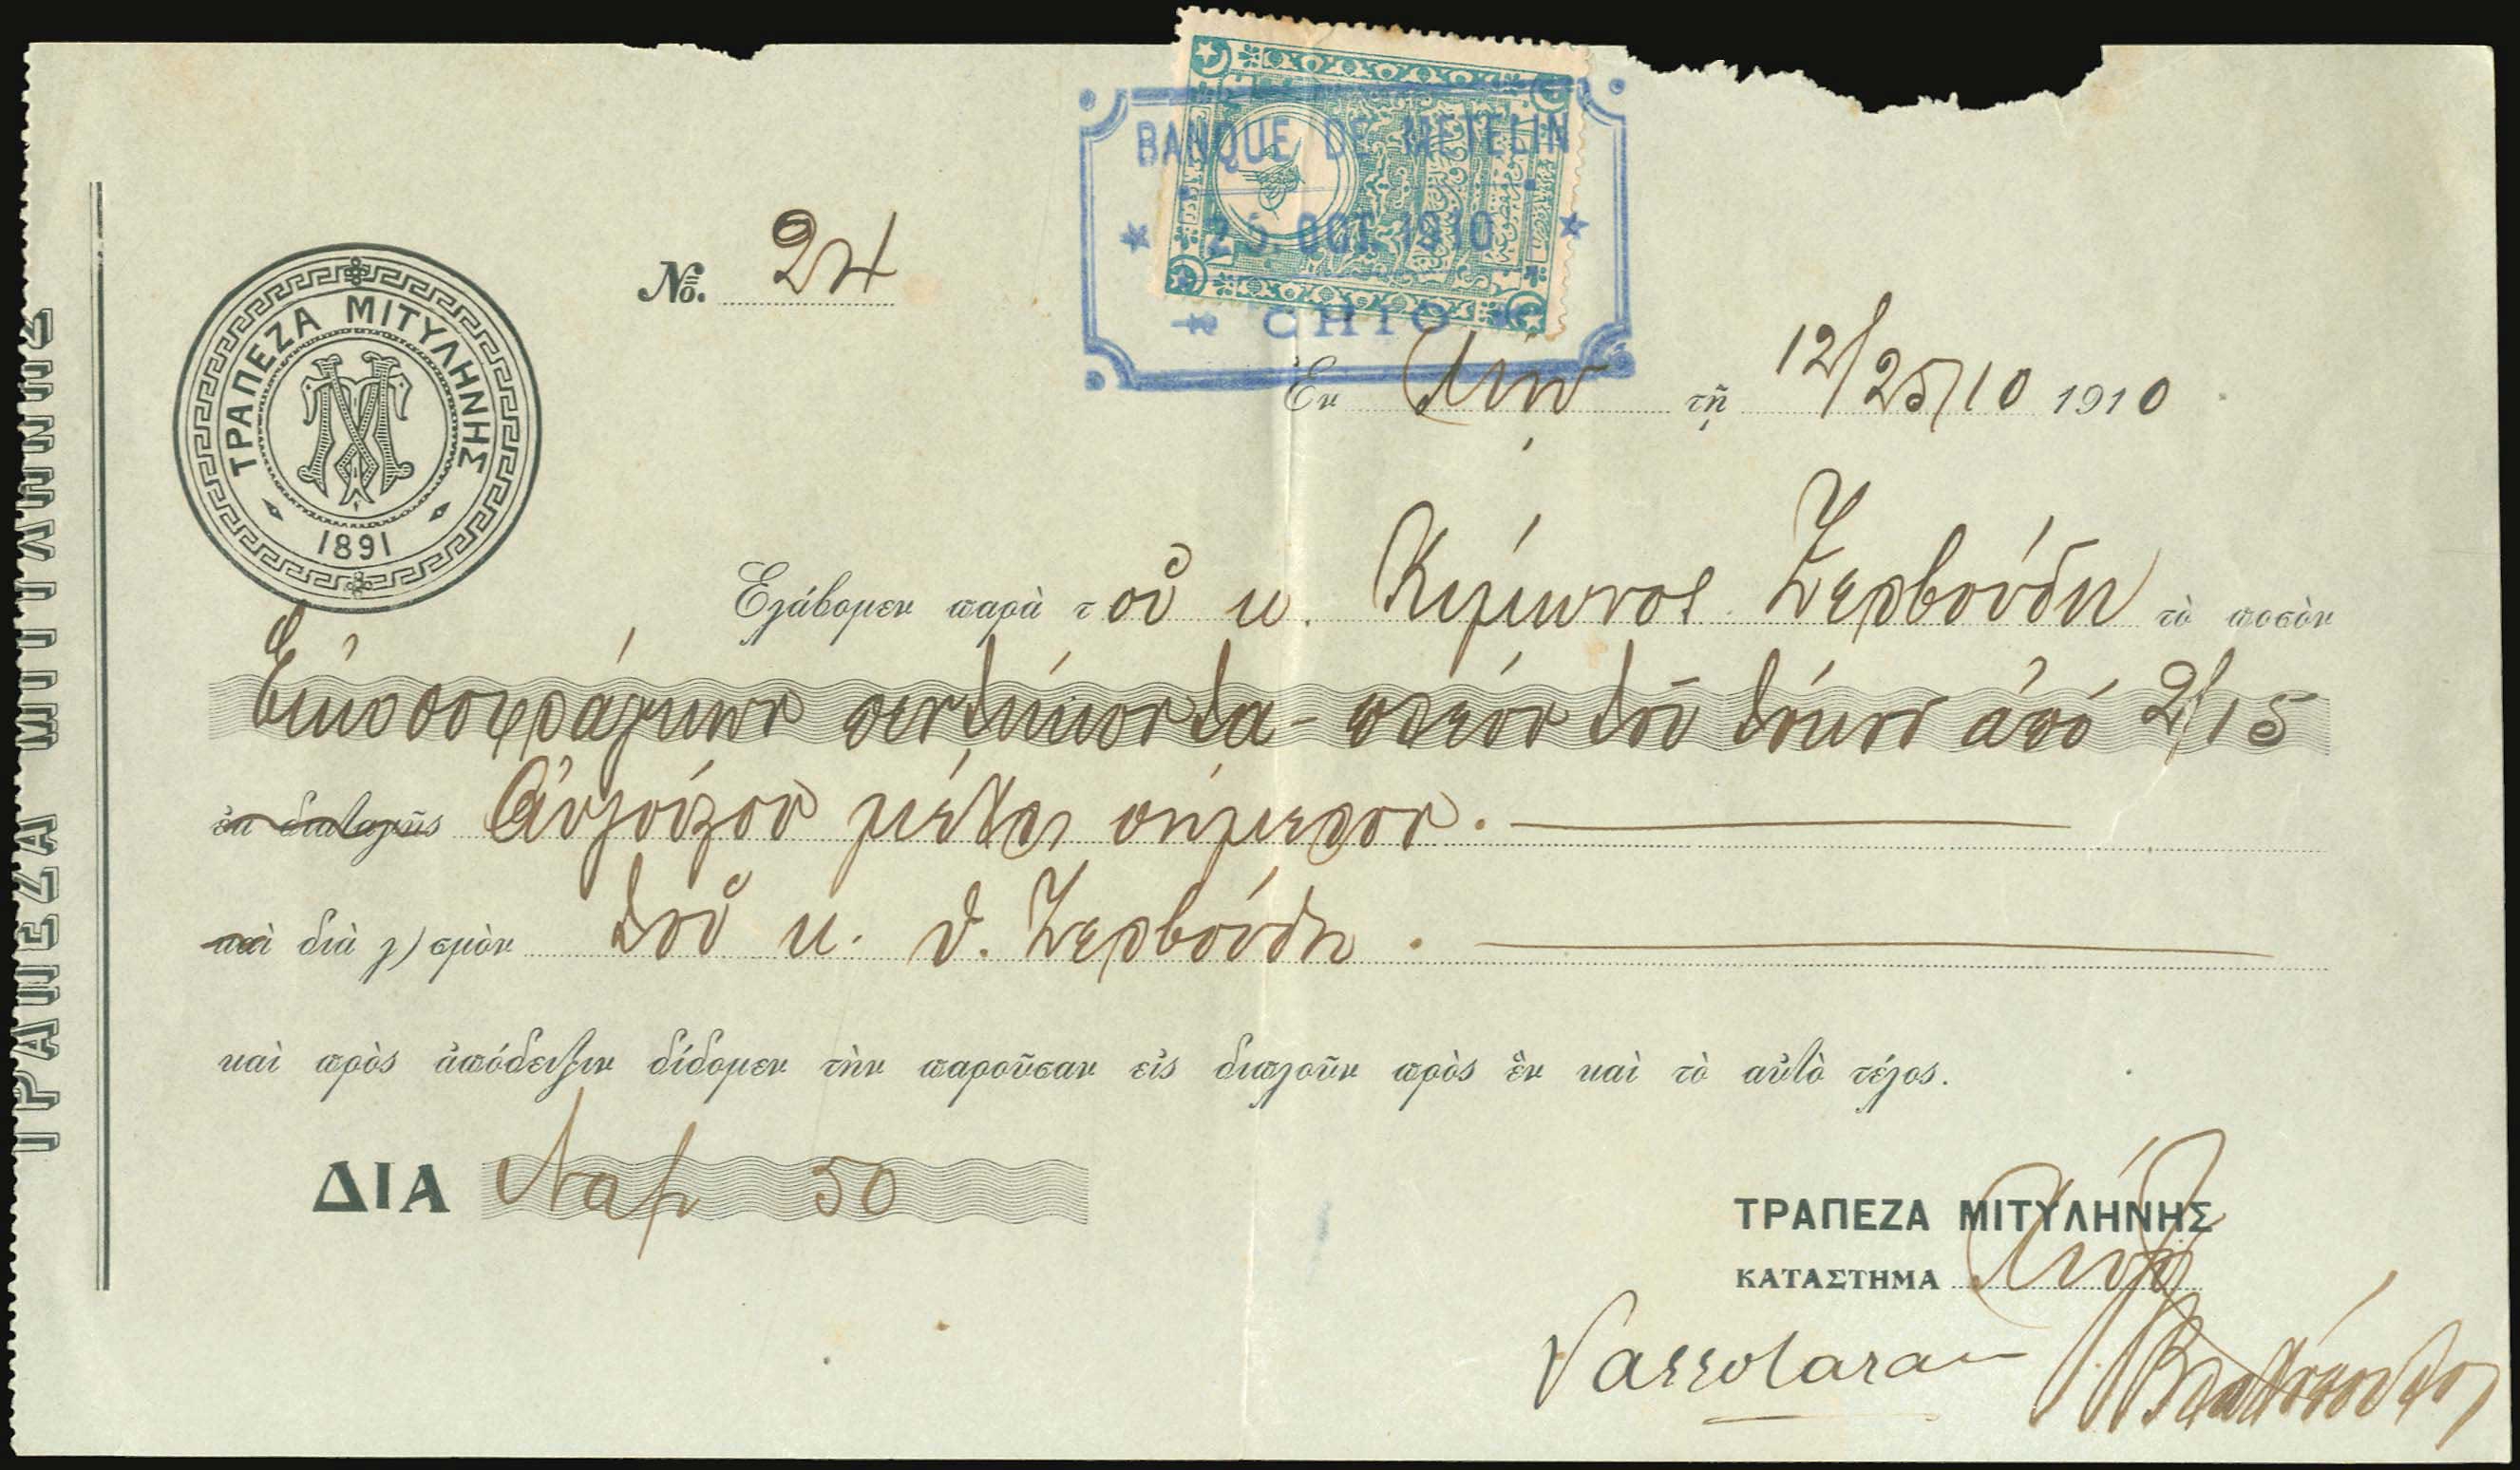 BANQUE DE METELIN
25 OCT 1910
CHIO
Νο. 24
ΤΡΑΠΕΖΑ ΜΙΤΥΛΗΝΗΣ
ΤΜ
1891
Ἐν Χίῳ τῇ 12/25/10 1910
Ἐλάβομεν παρὰ τοῦ κ. Κίμωνος Ζερβούδη τὸ ποσὸν
Εἰκοσοφράγκων πεντήκοντα - πλέον τοῦ τόκου ἀπό 2/15
ἐκ διαταγῆς Αὐγούστου μέχρι σήμερον.
καὶ διὰ λ)σμὸν τοῦ κ. Θ. Ζερβούδη.
καὶ πρὸς ἀπόδειξιν δίδομεν τὴν παροῦσαν εἰς διπλοῦν πρὸς ἓν καὶ τὸ αὐτὸ τέλος.
ΔΙΑ Ναπ 50
ΤΡΑΠΕΖΑ ΜΙΤΥΛΗΝΗΣ
ΚΑΤΑΣΤΗΜΑ Χίου
ΤΡΑΠΕΖΑ ΜΙΤΥΛΗΝΗΣ